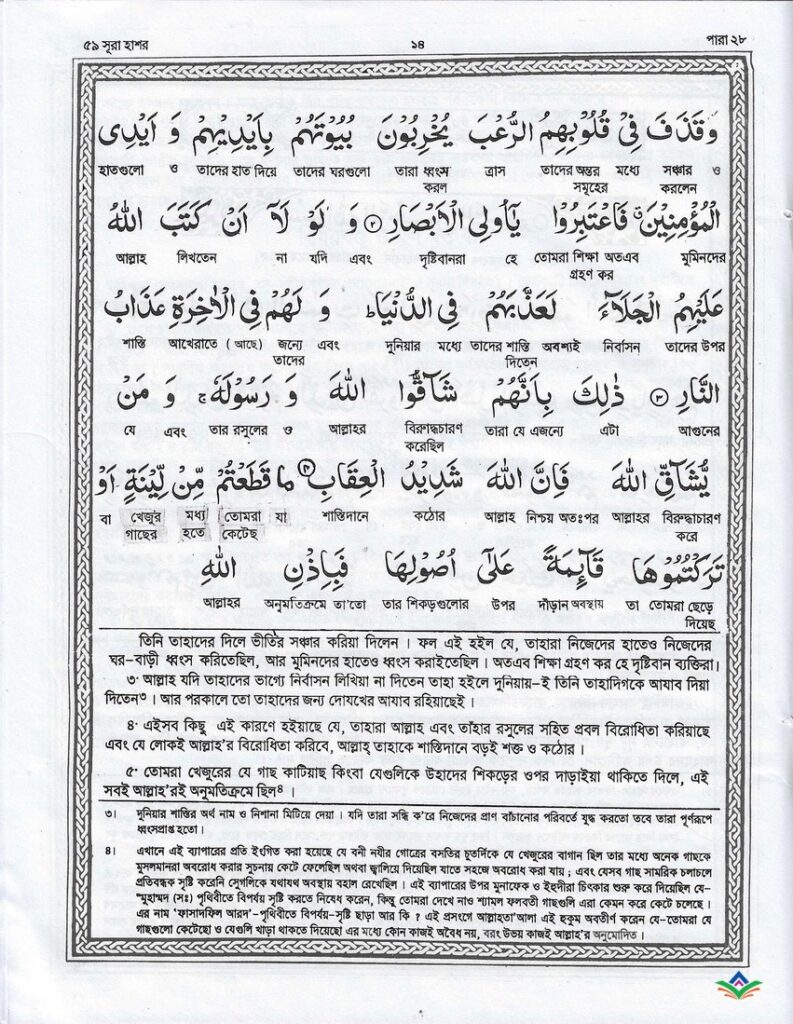 ৫৯ সূরা হাশর ১৪ পারা ২৮
وَ قَذَفَ فِیْ قُلُوْبِهِمُ الرُّعْبَ یُخْرِبُوْنَ بُیُوْتَهُمْ بِاَیْدِیْهِمْ وَ اَیْدِی
হাতগুলো ও তাদের হাত দিয়ে তাদের ঘরগুলো তারা ধ্বংস ত্রাস তাদের অন্তর মধ্যে সঞ্চার ও
করল সমূহের করলেন
الْمُؤْمِنِیْنَ ۗ فَاعْتَبِرُوْا یٰۤاُولِی الْاَبْصَارِ ② وَ لَوْ لَاۤ اَنْ كَتَبَ اللّٰهُ
আল্লাহ লিখতেন না যদি এবং দৃষ্টিবানরা হে তোমরা শিক্ষা অতএব মুমিনদের
গ্রহণ কর
عَلَیْهِمُ الْجَلَآءَ لَعَذَّبَهُمْ فِی الدُّنْیَا ؕ وَ لَهُمْ فِی الْاٰخِرَةِ عَذَابُ
শাস্তি আখেরাতে (আছে) জন্যে এবং দুনিয়ার মধ্যে তাদের শাস্তি অবশ্যই নির্বাসন তাদের উপর
তাদের দিতেন
النَّارِ ③ ذٰلِكَ بِاَنَّهُمْ شَآقُّوا اللّٰهَ وَ رَسُوْلَهٗ ۚ وَ مَنْ
যে এবং তার রসূলের ও আল্লাহর বিরুদ্ধাচারণ তারা যে এজন্যে এটা আগুনের
করেছিল
یُّشَآقِّ اللّٰهَ فَاِنَّ اللّٰهَ شَدِیْدُ الْعِقَابِ ④ مَا قَطَعْتُمْ مِّنْ لِّیْنَةٍ اَوْ
বা খেজুর মধ্য তোমরা যা শাস্তিদানে কঠোর আল্লাহ নিশ্চয় অতঃপর আল্লাহর বিরুদ্ধাচারণ
গাছের হতে কেটেছ করে
تَرَكْتُمُوْهَا قَآىِٕمَةً عَلٰۤی اُصُوْلِهَا فَبِاِذْنِ اللّٰهِ
আল্লাহর অনুমতিক্রমে তা'তো তার শিকড়গুলোর উপর দাঁড়ান অবস্থায় তা তোমরা ছেড়ে
দিয়েছ
তিনি তাহাদের দিলে ভীতির সঞ্চার করিয়া দিলেন। ফল এই হইল যে, তাহারা নিজেদের হাতেও নিজেদের
ঘর-বাড়ী ধ্বংস করিতেছিল, আর মুমিনদের হাতেও ধ্বংস করাইতেছিল। অতএব শিক্ষা গ্রহণ কর হে দৃষ্টিবান ব্যক্তিরা।
৩· আল্লাহ যদি তাহাদের ভাগ্যে নির্বাসন লিখিয়া না দিতেন তাহা হইলে দুনিয়ায়-ই তিনি তাহাদিগকে আযাব দিয়া
দিতেন৩। আর পরকালে তো তাহাদের জন্য দোযখের আযাব রহিয়াছেই।
৪· এইসব কিছু এই কারণে হইয়াছে যে, তাহারা আল্লাহ এবং তাঁহার রসূলের সহিত প্রবল বিরোধিতা করিয়াছে
এবং যে লোকই আল্লাহ'র বিরোধিতা করিবে, আল্লাহ্ তাহাকে শাস্তিদানে বড়ই শক্ত ও কঠোর।
৫· তোমরা খেজুরের যে গাছ কাটিয়াছ কিংবা যেগুলিকে উহাদের শিকড়ের ওপর দাড়াইয়া থাকিতে দিলে, এই
সবই আল্লাহ'রই অনুমতিক্রমে ছিল৪।
৩। দুনিয়ার শাস্তির অর্থ নাম ও নিশানা মিটিয়ে দেয়া। যদি তারা সন্ধি ক'রে নিজেদের প্রাণ বাঁচানোর পরিবর্তে যুদ্ধ করতো তবে তারা পূর্ণরূপে
ধ্বংসপ্রাপ্ত হতো।
৪। এখানে এই ব্যাপারের প্রতি ইংগিত করা হয়েছে যে বনী নযীর গোত্রের বসতির চতুর্দিকে যে খেজুরের বাগান ছিল তার মধ্যে অনেক গাছকে
মুসলমানরা অবরোধ করার সূচনায় কেটে ফেলেছিল অথবা জ্বালিয়ে দিয়েছিল যাতে সহজে অবরোধ করা যায়; এবং যেসব গাছ সামরিক চলাচলে
প্রতিবন্ধক সৃষ্টি করেনি সেগুলিকে যথাযথ অবস্থায় বহাল রেখেছিল। এই ব্যাপারের উপর মুনাফেক ও ইহুদীরা চিৎকার শুরু করে দিয়েছিল যে-
"মুহাম্মদ (সঃ) পৃথিবীতে বিপর্যয় সৃষ্টি করতে নিষেধ করেন, কিন্তু তোমরা দেখে নাও শ্যামল ফলবতী গাছগুলি এরা কেমন করে কেটে চলেছে।
এর নাম 'ফাসাদফিল আরদ'-পৃথিবীতে বিপর্যয়-সৃষ্টি ছাড়া আর কি? এই প্রসংগে আল্লাহতা'আলা এই হুকুম অবতীর্ণ করেন যে-তোমরা যে
গাছগুলো কেটেছো ও যেগুলি খাড়া থাকতে দিয়েছো এর মধ্যে কোন কাজই অবৈধ নয়, বরং উভয় কাজই আল্লাহ'র অনুমোদিত।